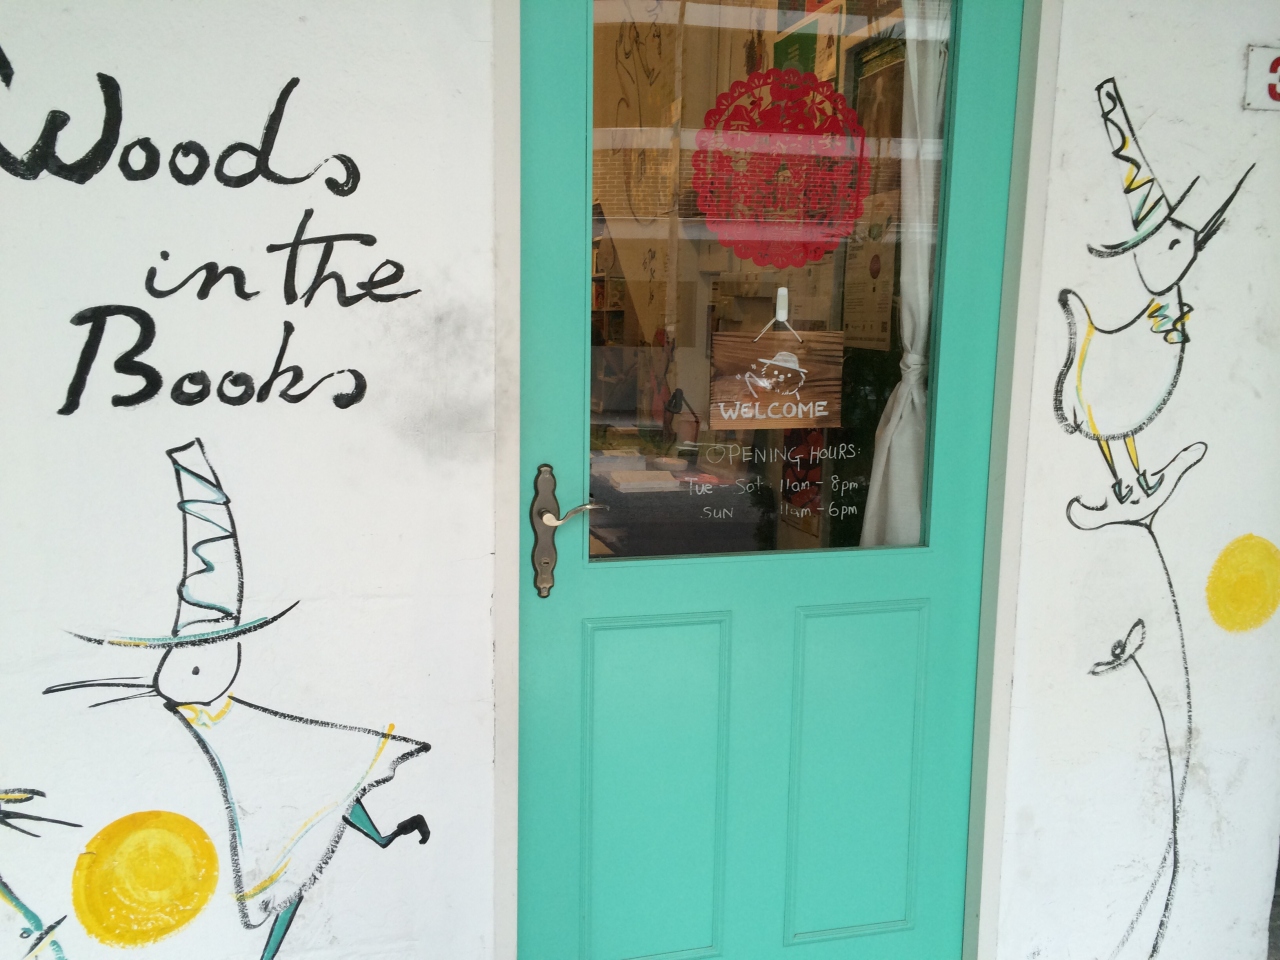 Woods
in the
Books
WELCOME
OPENING HOURS:
Tue - Sat 11am - 8pm
SUN 11am - 6pm
3